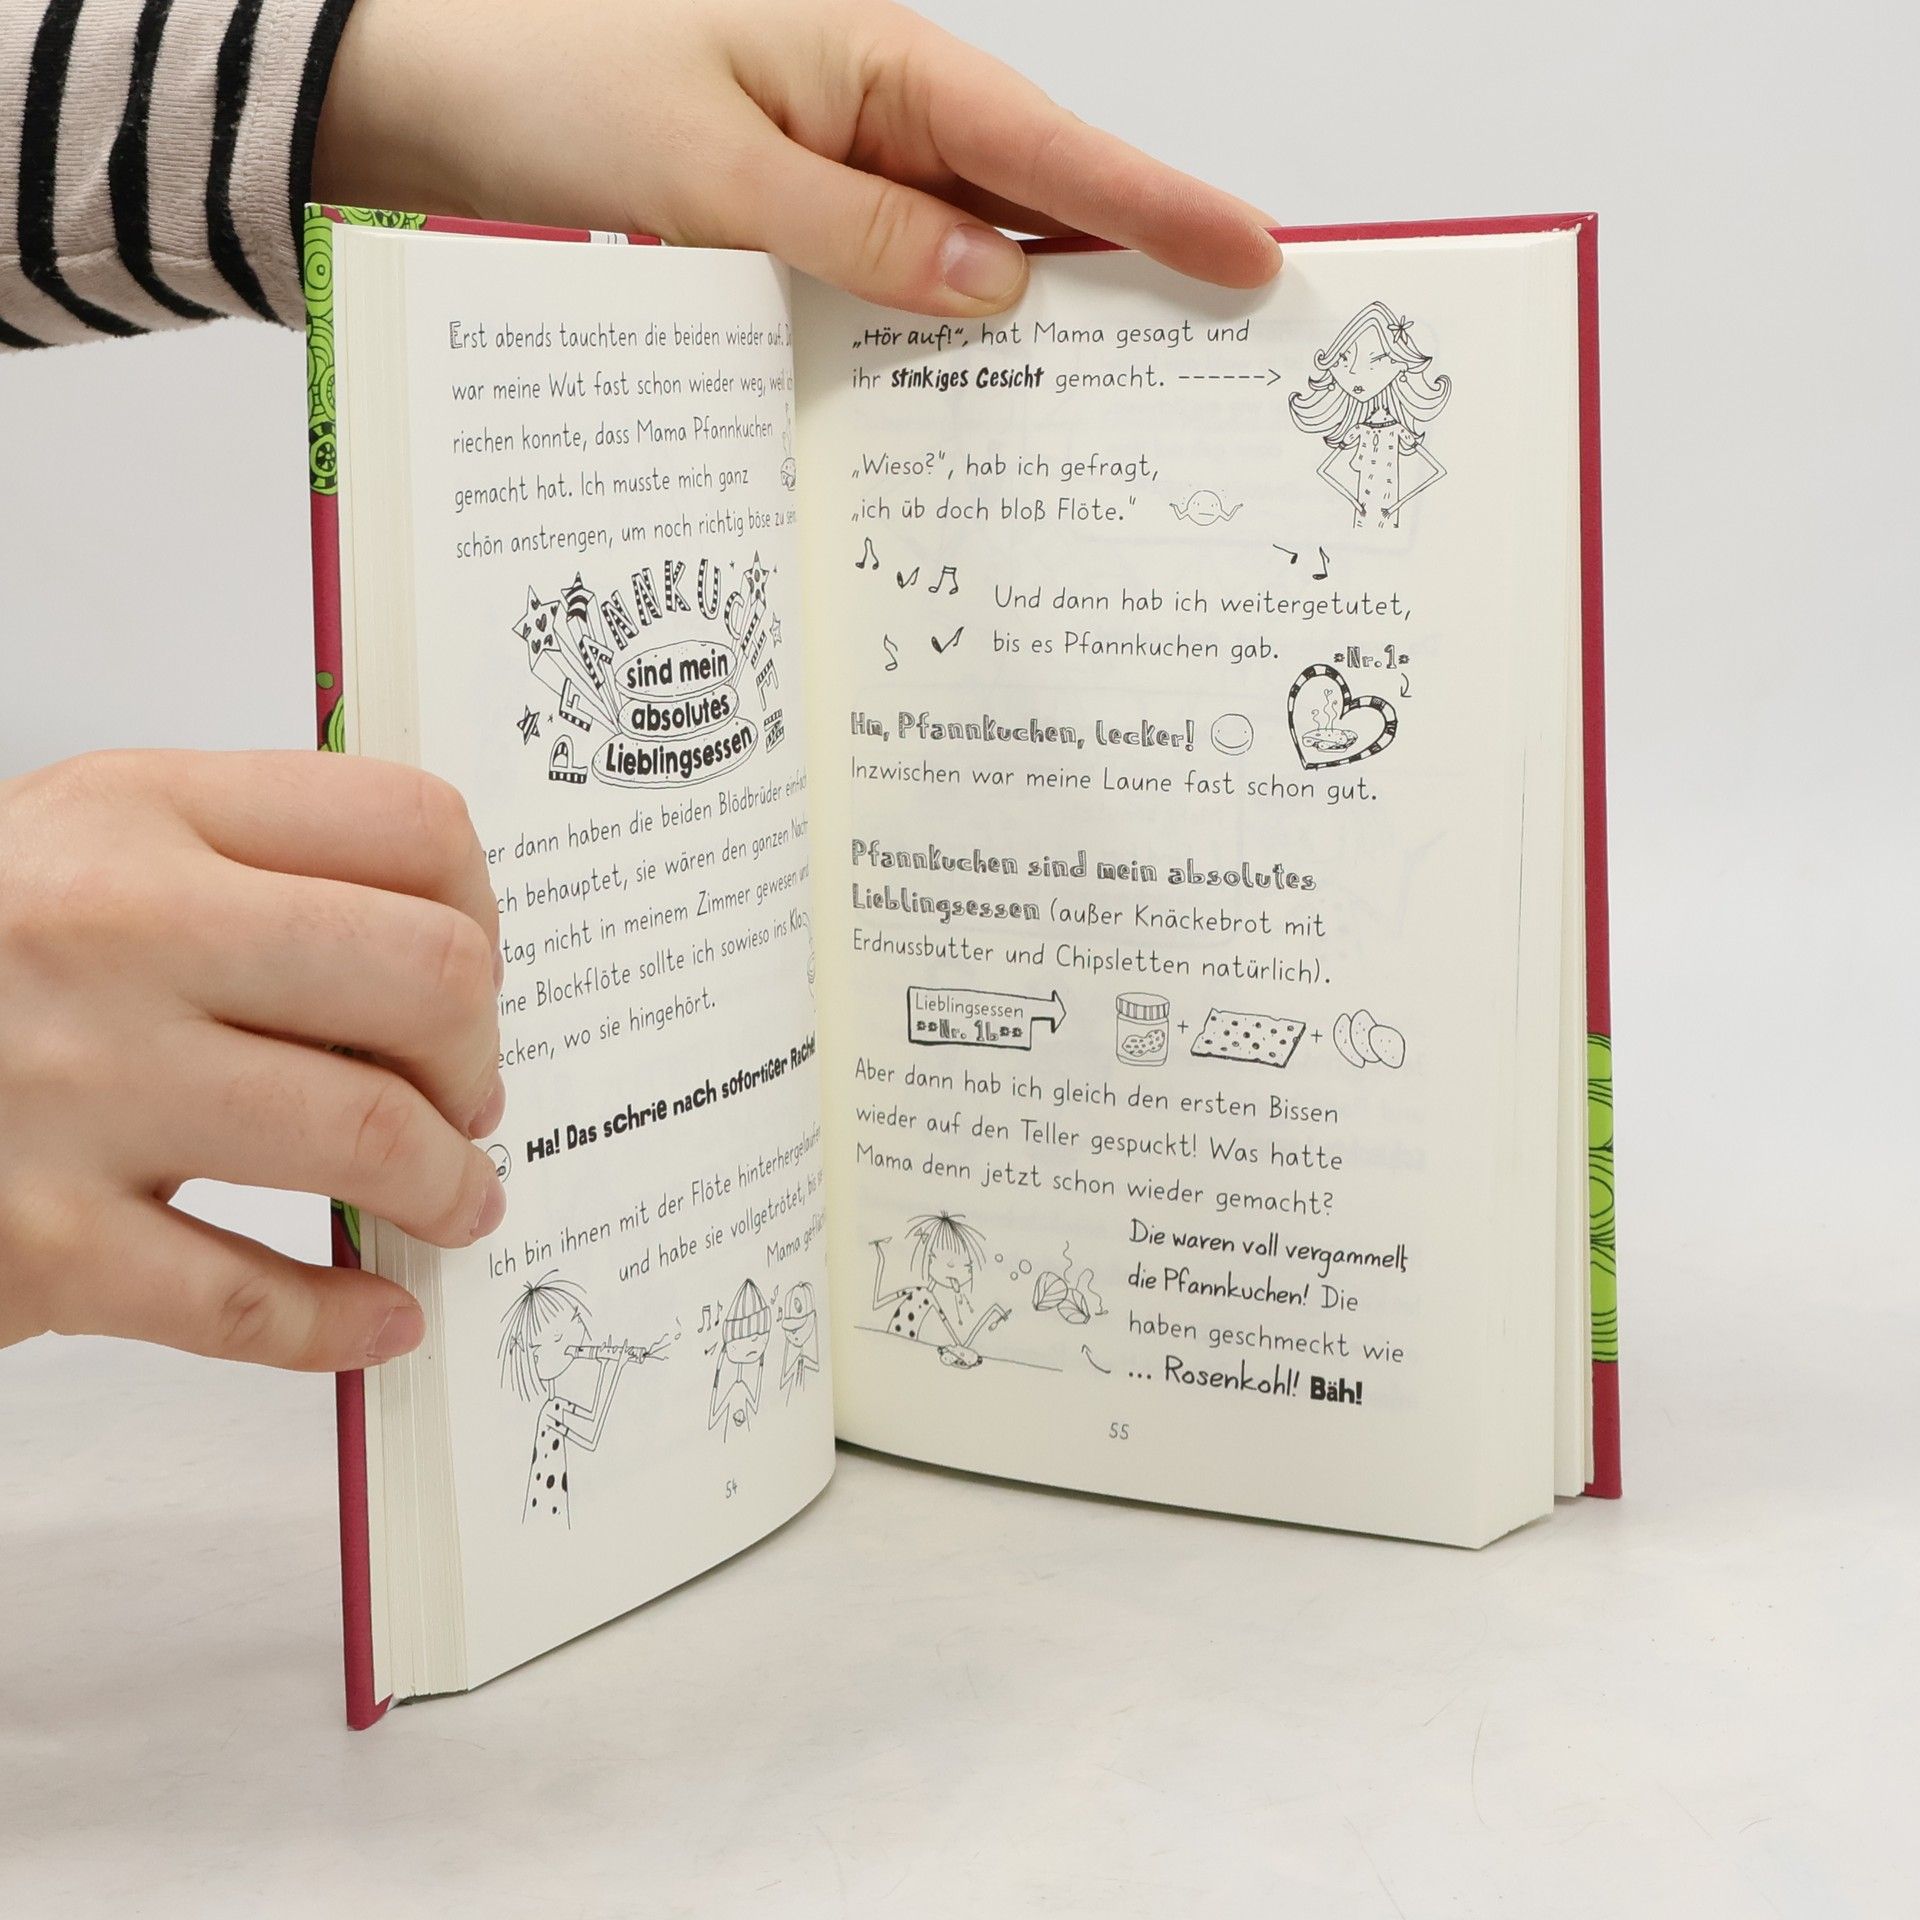 Erst abends tauchten die beiden wieder auf.
war meine Wut fast schon wieder weg, weil
riechen konnte, dass Mama Pfannkuchen
gemacht hat. Ich musste mich ganz
schön anstrengen, um noch richtig böse zu
PFANNKUCHEN
sind mein
absolutes
Lieblingsessen
dann haben die beiden Blödbrüder einfach
behauptet, sie wären den ganzen Nach-
tag nicht in meinem Zimmer gewesen und
Blockflöte sollte ich sowieso ins Klo
wo sie hingehört.
Ha! Das schrie nach sofortiger Rache!
Ich bin ihnen mit der Flöte hinterhergelaufen
und habe sie vollgetrötet, bis
Mama
54
„Hör auf!“, hat Mama gesagt und
ihr stinkiges Gesicht gemacht. ------>
„Wieso?“, hab ich gefragt,
„ich üb doch bloß Flöte.“
Und dann hab ich weitergetutet,
bis es Pfannkuchen gab.
*Nr.1*
Hm, Pfannkuchen, lecker!
Inzwischen war meine Laune fast schon gut.
Pfannkuchen sind mein absolutes
Lieblingsessen (außer Knäckebrot mit
Erdnussbutter und Chipsletten natürlich).
Lieblingsessen
**Nr. 1b**
+ +
Aber dann hab ich gleich den ersten Bissen
wieder auf den Teller gespuckt! Was hatte
Mama denn jetzt schon wieder gemacht?
Die waren voll vergammelt,
die Pfannkuchen! Die
haben geschmeckt wie
... Rosenkohl! Bäh!
55